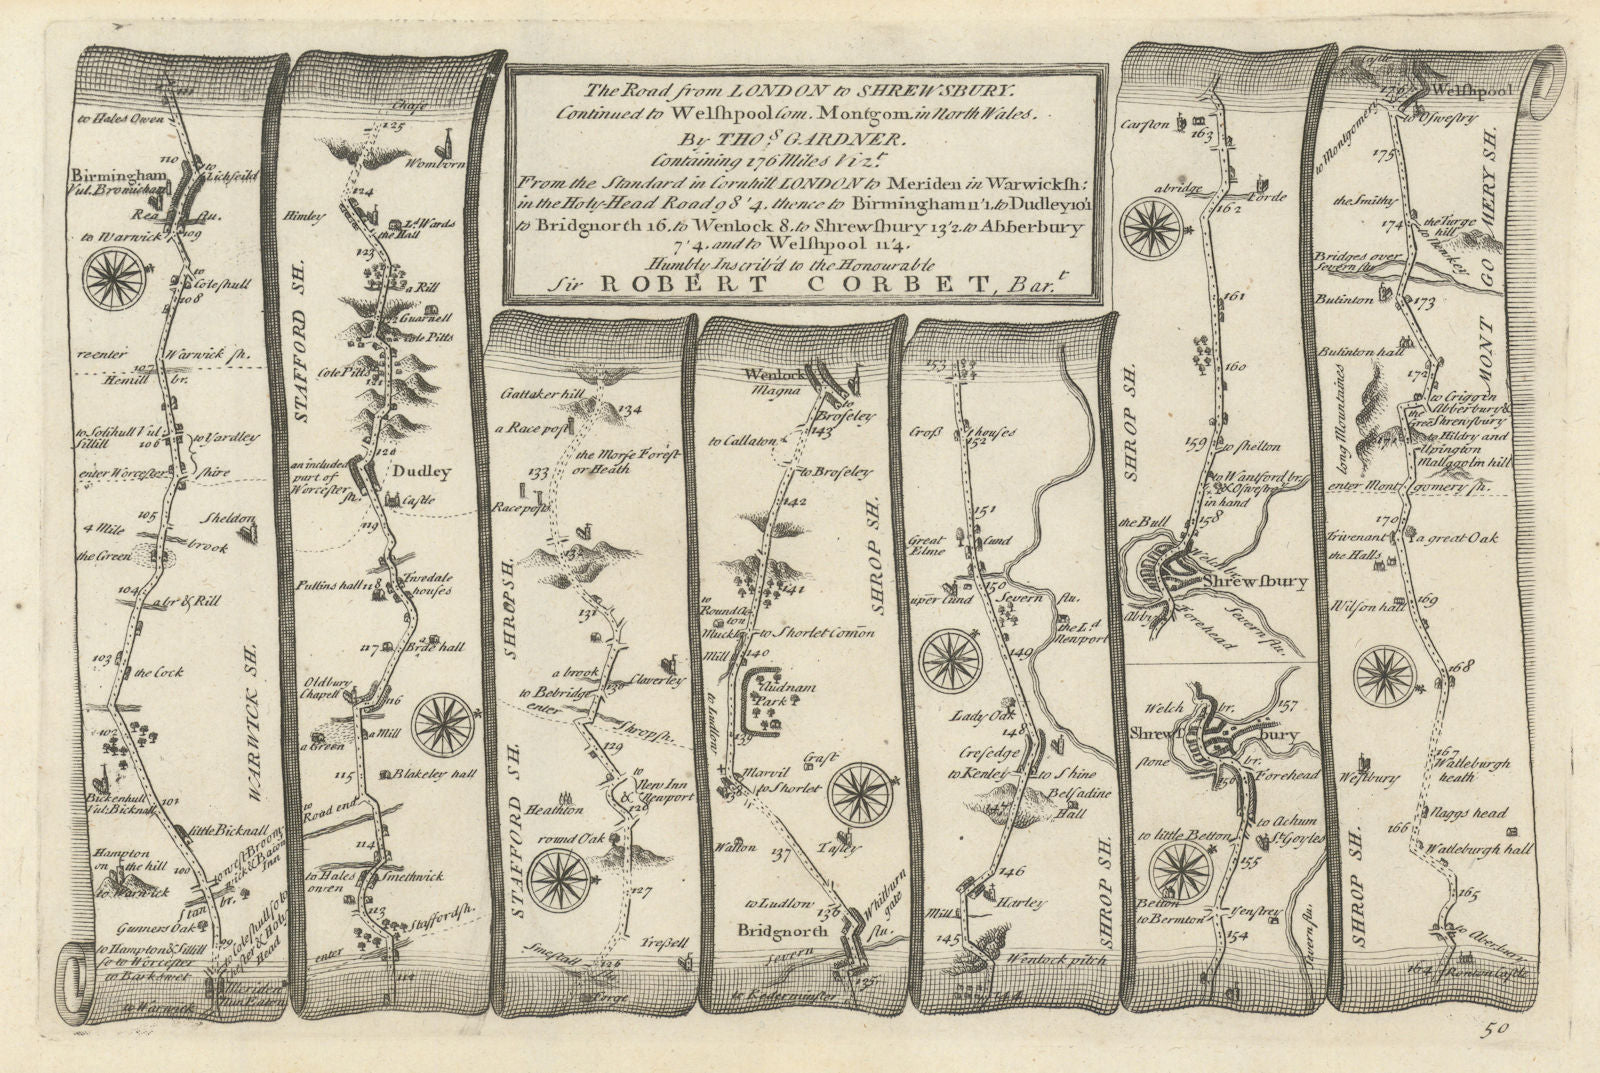 The Road from LONDON to SHREWSBURY.
Continued to Welſhpool Com. Montgom. in North Wales.
By THOS. GARDNER.
Containing 176 Miles
From the Standard in Cornhill LONDON to Meriden in Warwickſh:
in the Holy-Head Road 98'4. thence to Birmingham 11'1. to Dudley 10'1
to Bridgnorth 16. to Wenlock 8. to Shrewſbury 13'2. to Abberbury
7'4. and to Welſhpool 11'4.
Humbly Inscrib'd to the Honourable
Sir ROBERT CORBET, Bar.t
111
to Hales Owen
110
to
Lichfeild
Birmingham
Vul. Bromicham
Rea flu.
to Warwick
109
to
Coleshull
108
reenter Warwick ſh.
107
Hemill br.
to Solihull Vul
Sillill
106
to Yardley
enter Worceſter ſhire
105
Sheldon
4 Mile brook
the Green
104
a br & Rill
103
the Cock
WARWICK SH.
102
Bickenhull
Vul. Bicknall
101
little Bicknall
Hampton
on the hill
100
to Warwick
Stan br.
Gunners Oak
99
to Hampton & Sillill
so to Worceſter
to Barkswet
Meriden
Nun Eaton
to Warwick
Chase
125
Womborn
124
Himley
Ld. Wards
the Hall
123
a Rill
STAFFORD SH.
Guarnell
Cole Pitts
Cole Pitts
121
120
an included
part of
Worceſter
ſh.
Dudley
Castle
119
Fullins hall
118
Tivedale
houses
117
Brae hall
Oldbury
Chapell
116
a Green
a Mill
115
Blakeley hall
to
Road end
114
to Hales
owen
Smethwick
113
Staffordſh.
enter
Gattaker hill
134
a Race post
the Morse Forest
or Heath
133
Race posts
SHROPSH.
131
a brook
130
Claverley
to Bebridge
enter Shropſh.
129
to
New Inn
& Newport
128
Heathton
round Oak
STAFFORD SH.
127
Smestall flu
126
Tresell
Forge
Wenlock
Magna
to
Broseley
143
to Callaton
to Broseley
142
SHROP SH.
141
to Shorlet Common
Mill
140
Widnam
Park
to Ludlow
139
Marvil
to Shorlet
Gast
Walton
137
Taſley
to Ludlow
136
Whitburn
gate
Bridgnorth
Severn flu.
135
to Kederminster
153
Croß houses
152
151
Great
Elme
Cund
150
uper Cund
Severn flu.
the Ld
Newport
149
Lady Oak
148
Cresedge
to Kenley
to Shine
147
Belſadine
Hall
SHROP SH.
146
Harley
Mill
145
Wenlock pitch
144
Carſton
163
abridge
162
Forde
161
160
SHROP SH.
159
to Shelton
in hand
158
the Bull
Welch br.
Shrewſbury
Abby
Forehead
Severn flu.
Welch br.
157
Shrewſ bury
stone br.
156
Forehead
to little Betton
to Achum
St Goyles
155
Betton
to Bermton
154
Severn flu.
Castle
176
Welſhpool
to Oſwestry
to Montgomery
175
the Smithy
174
MONT GO MERY SH.
Bridges over
Severn flu
Butinton
173
Butinton hall
172
to Criggin
Abberbury &
Shrewsbury
long Mountaines
171
to Hildry and
Upington
Mallgolm hill
enter Montgomery ſh.
170
Trivenant
the Halls
a great Oak
169
Wilson hall
168
167
Watleburgh
heath
Westbury
Naggs head
166
Watleburgh hall
SHROP SH.
165
164
50